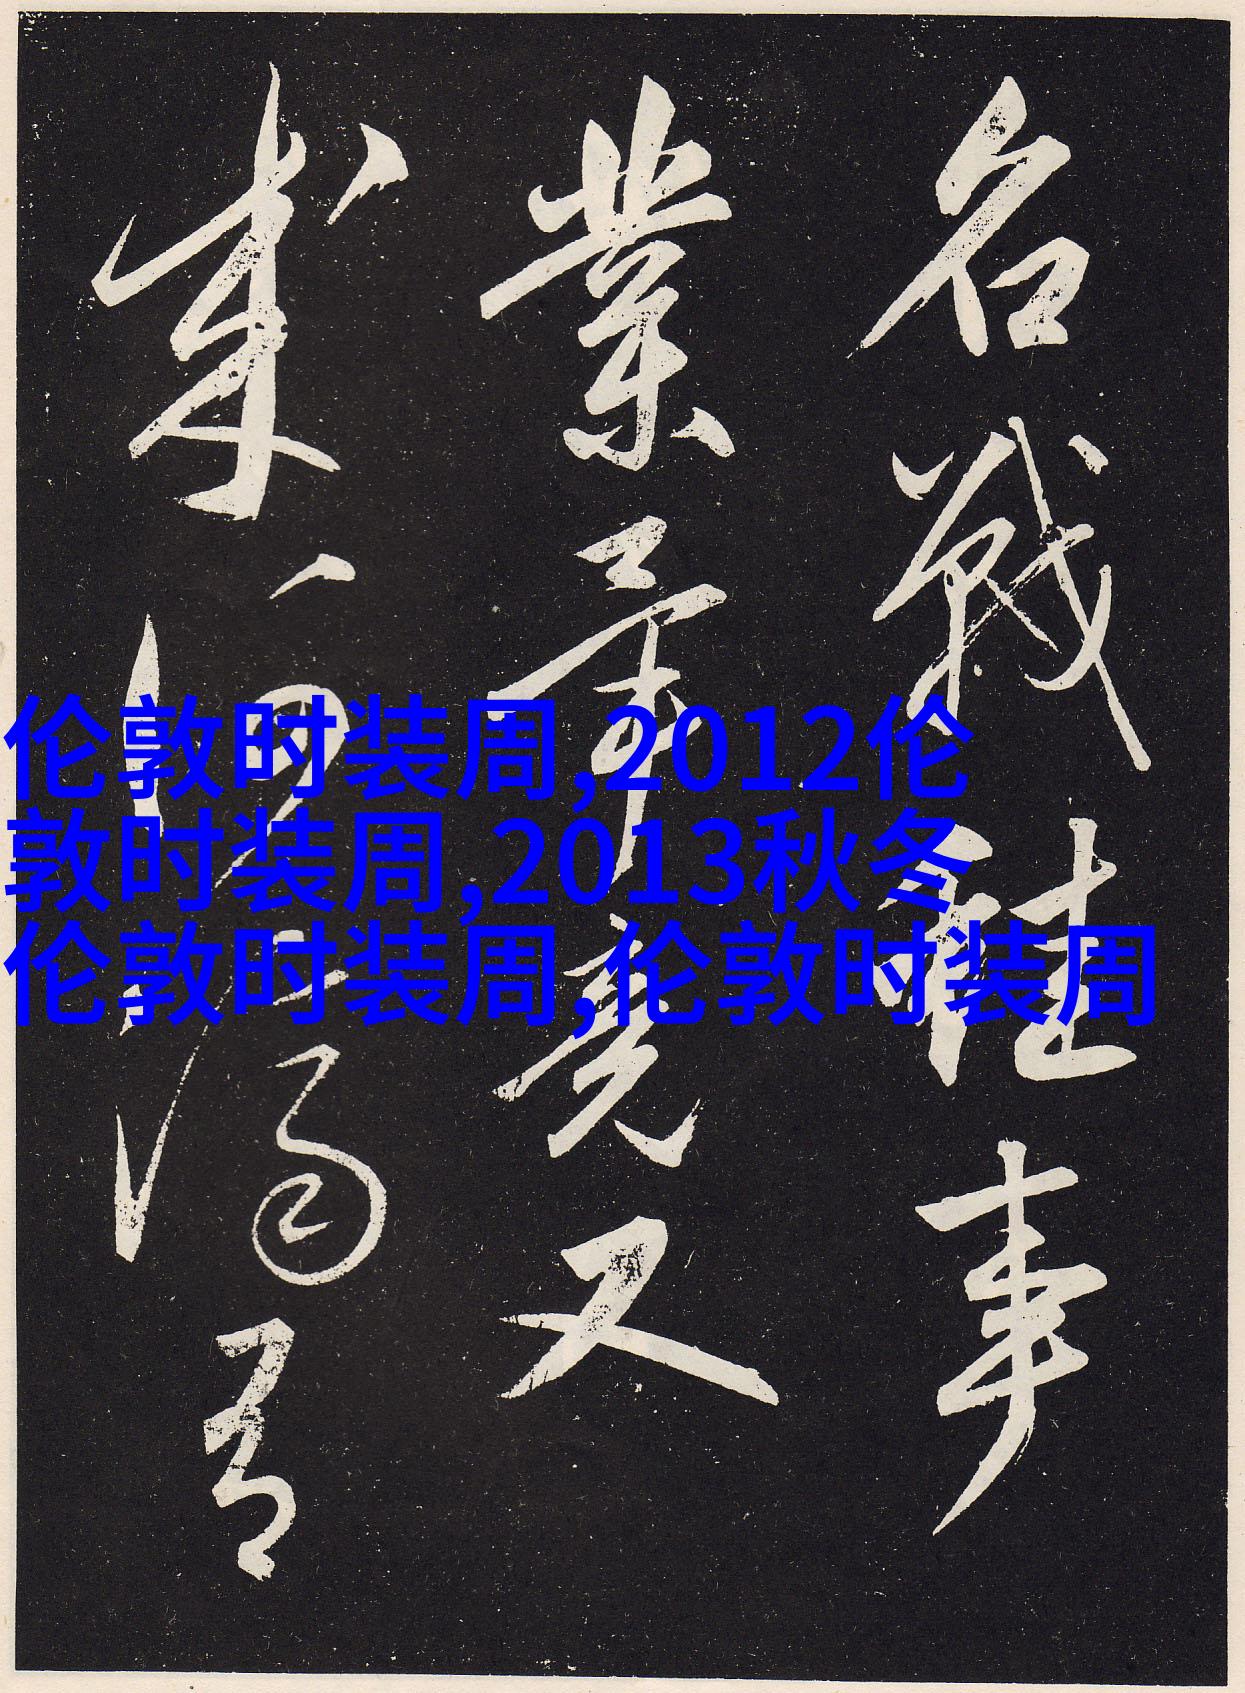 名戰事
業竟又
成何得言
伦敦时装周,2012伦
敦时装周,2013秋冬
伦敦时装周,伦敦时装周